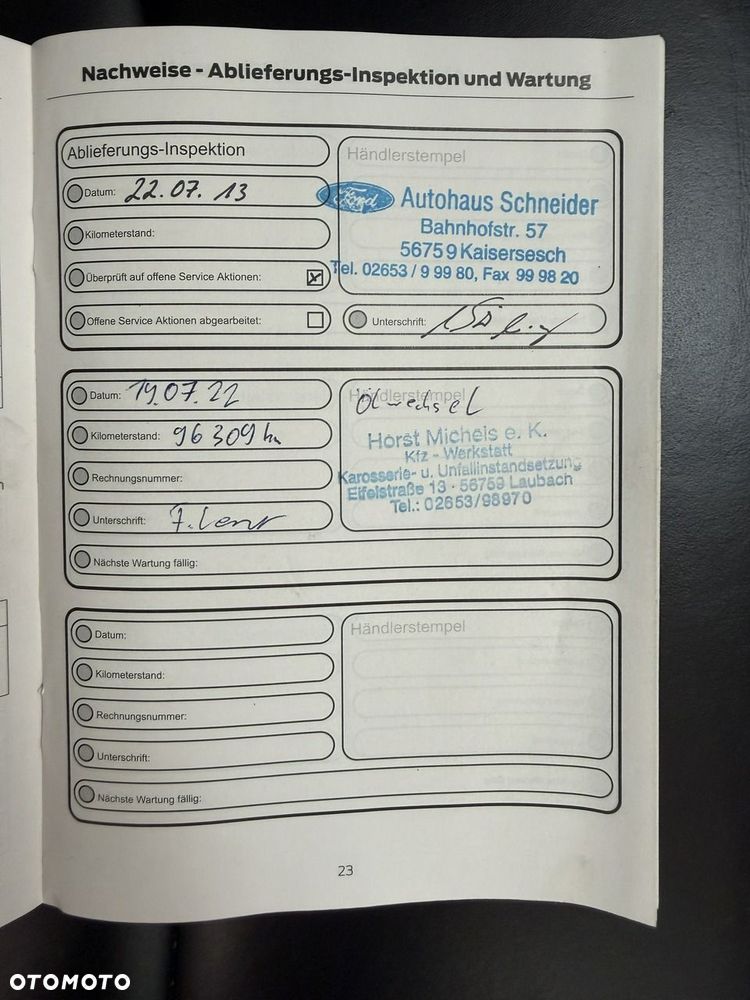 Nachweise - Ablieferungs-Inspektion und Wartung
Ablieferungs-Inspektion
Händlerstempel
Datum: 22.07.13
Ford Autohaus Schneider
Bahnhofstr. 57
56759 Kaisersesch
Tel. 02653 / 9 99 80, Fax 99 98 20
Kilometerstand:
Überprüft auf offene Service Aktionen:
Offene Service Aktionen abgearbeitet:
Unterschrift:
Datum: 19.07.22
Händlerstempel
Ölwechsel
Kilometerstand: 96 309 km
Horst Michels e. K.
Kfz - Werkstatt
Karosserie- u. Unfallinstandsetzung
Eifelstraße 13 · 56759 Laubach
Tel.: 02653/98970
Rechnungsnummer:
Unterschrift:
Nächste Wartung fällig:
Datum:
Händlerstempel
Kilometerstand:
Rechnungsnummer:
Unterschrift:
Nächste Wartung fällig:
23
OTOMOTO